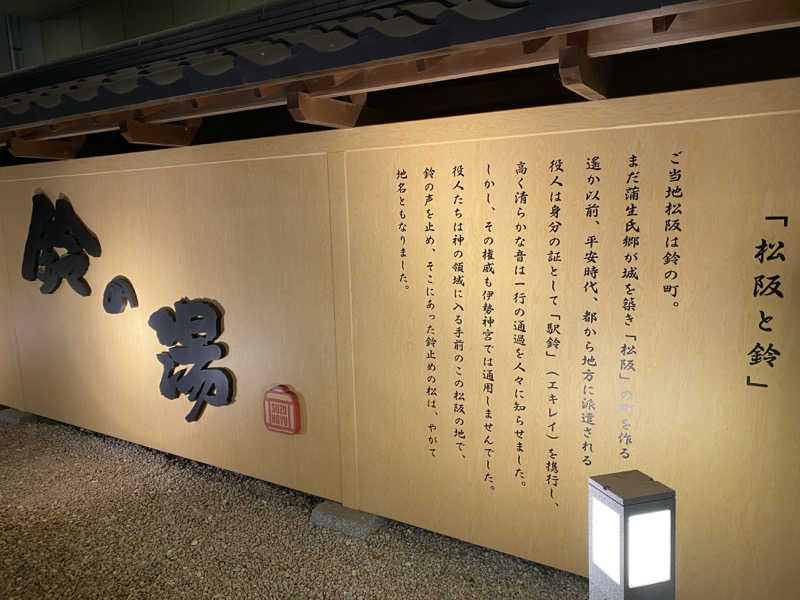 「松阪と鈴」
ご当地松阪は鈴の町。
まだ蒲生氏郷が城を築き「松阪」の町を作る
遥か以前、平安時代、都から地方に派遣される
役人は身分の証として「駅鈴」（エキレイ）を携行し、
高く清らかな音は一行の通過を人々に知らせました。
しかし、その権威も伊勢神宮では通用しませんでした。
役人たちは神の領域に入る手前のこの松阪の地で、
鈴の声を止め、そこにあった鈴止めの松は、やがて
地名ともなりました。
鈴の湯